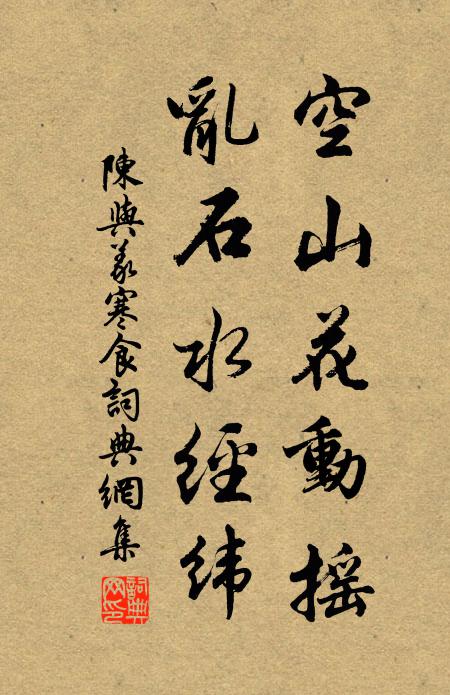 空山花動搖
亂石水經緯
陳與義寒食詞典網集
詞典網印